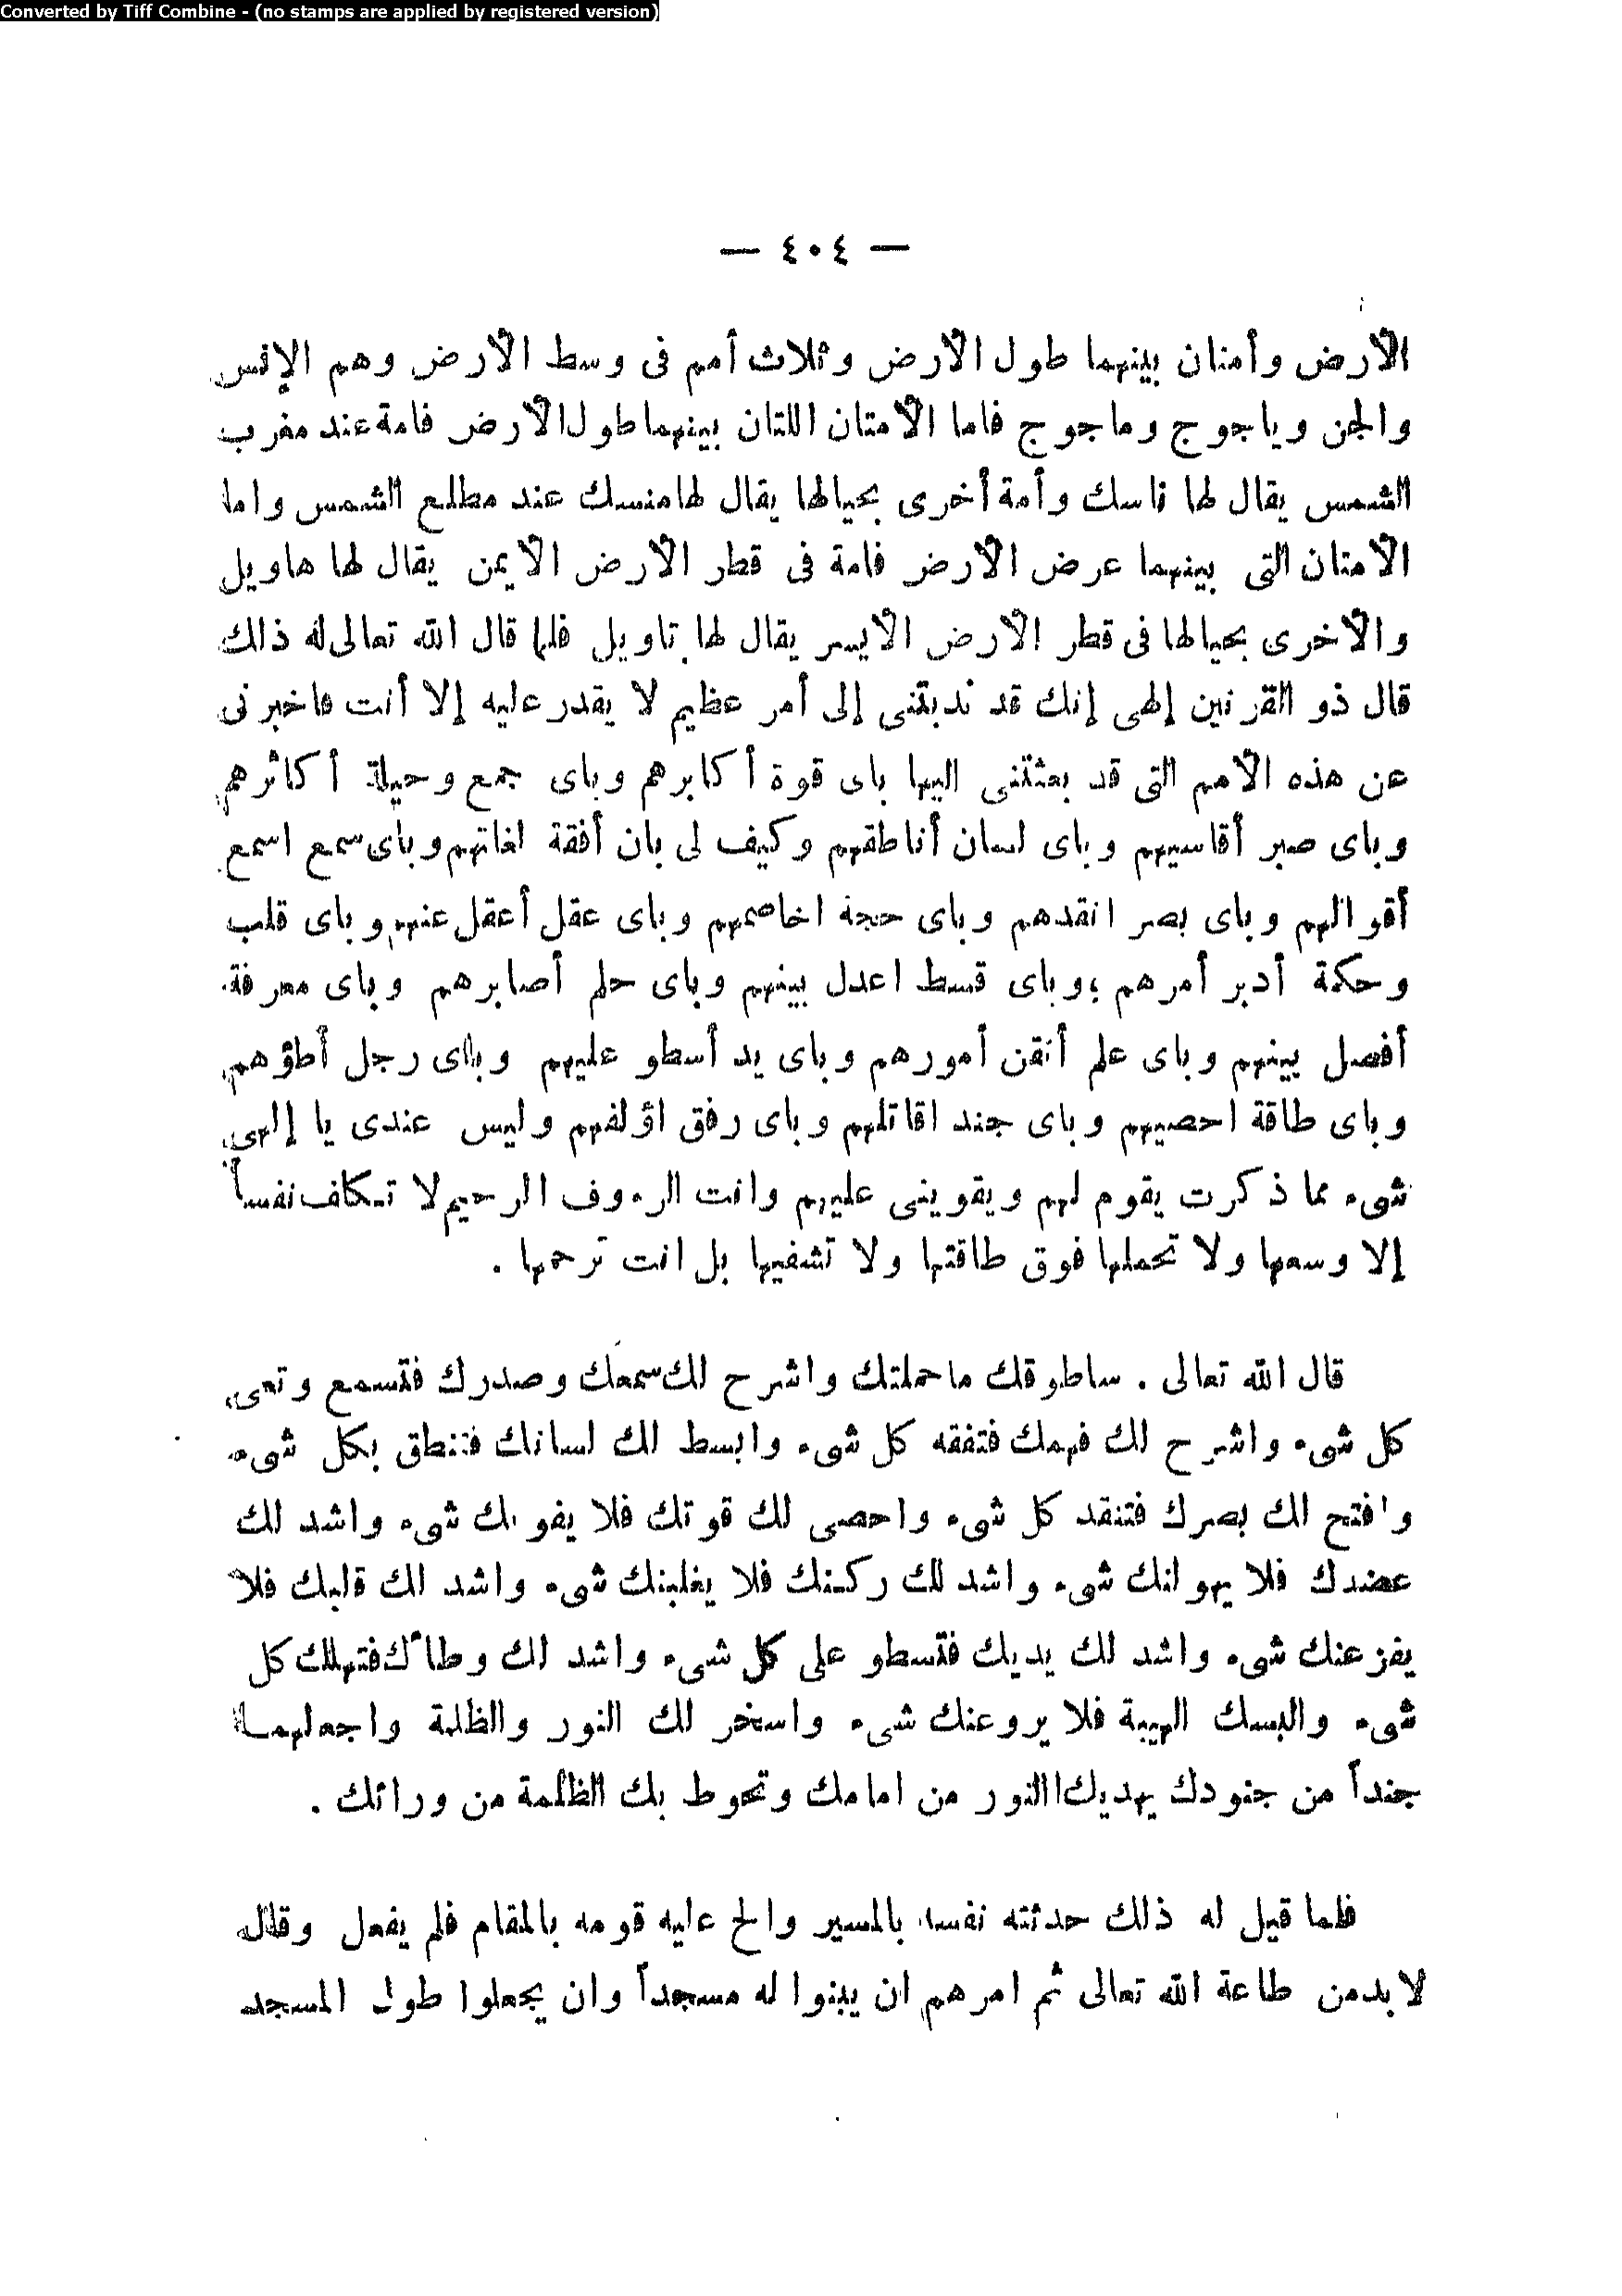 Converted by Tiff Combine - (no stamps are applied by registered version)
— ٤٠٤ —
الأرض وأمنان بينهما طول الأرض وثلاث أمم فى وسط الأرض وهم الإنس
والجن وياجوج وماجوج فاما الأمتان اللتان بينهما طول الأرض فامة عند مغرب
الشمس يقال لها ناسك وأمة أخرى بحيالها يقال لها منسك عند مطلع الشمس واما
الامتان التى بينهما عرض الأرض فامة فى قطر الأرض الايمن يقال لها هاويل
والأخرى بحيالها فى قطر الأرض الأيسر يقال لها تاويل فلما قال الله تعالى له ذلك
قال ذو القرنين إلهى إنك قد ندبتنى إلى أمر عظيم لا يقدر عليه إلا أنت فاخبرنى
عن هذه الأمم التى قد بعثتنى اليها باى قوة أكابرهم وباى جمع وحيلة أكاثرهم
وباى صبر أقاسيهم وباى لسان أناطقهم وكيف لى بان أفقة لغاتهم وباى سمع اسمع
أقوالهم وباى بصر انقدهم وباى حجة اخاصمهم وباى عقل أعقل عنهم وباى قلب
وحكمة أدبر أمرهم وباى قسط اعدل بينهم وباى حلم أصابرهم وباى معرفة
أفصل بينهم وباى علم أتقن أمورهم وباى يد أسطو عليهم وباى رجل أطؤهم
وباى طاقة احصيهم وباى جند اقاتلهم وباى رفق اؤلفهم وليس عندى يا إلهى
شىء مما ذكرت يقوم لهم ويقوينى عليهم وانت الرءوف الرحيم لا تكلف نفساً
إلا وسعها ولا تحملها فوق طاقتها ولا تشفيها بل انت ترحمها .
قال الله تعالى . ساطوقك ما حملتك واشرح لك سمعك وصدرك فتسمع وتعى
كل شىء واشرح لك فهمك فتفقه كل شىء وابسط لك لسانك فتنطق بكل شىء
وافتح لك بصرك فتنقد كل شىء واحصى لك قوتك فلا يفوتك شىء واشد لك
عضدك فلا يهولنك شىء واشد لك ركنك فلا يغلبنك شىء واشد لك قلبك فلا
يفزعنك شىء واشد لك يديك فتسطو على كل شىء واشد لك وطأك فتهلك كل
شىء والبسك الهيبة فلا يروعنك شىء واسخر لك النور والظلمة واجعلهما
جنداً من جنودك يهديك النور من امامك وتحوط بك الظلمة من ورائك .
فلما قيل له ذلك حدثته نفسه بالمسير والح عليه قومه بالمقام فلم يفعل وقال
لا بد من طاعة الله تعالى ثم امرهم ان يبنوا له مسجداً وان يجعلوا طول المسجد